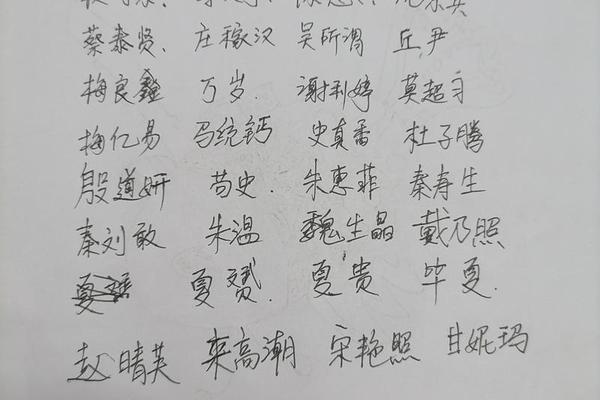 蔡泰贤、庄稼汉 吴所谓 丘尹
梅良鑫 万岁. 谢利婷 莫超习
梅仁易 马统钙 史真香 杜子腾
殷道妍 苟史. 朱惠菲 秦寿生
秦刘敢 朱温 魏生晶 戴乃照
夏 夏赟. 夏贵 毕夏.
赵晴英 来高潮 宋艳照 甘妮玛